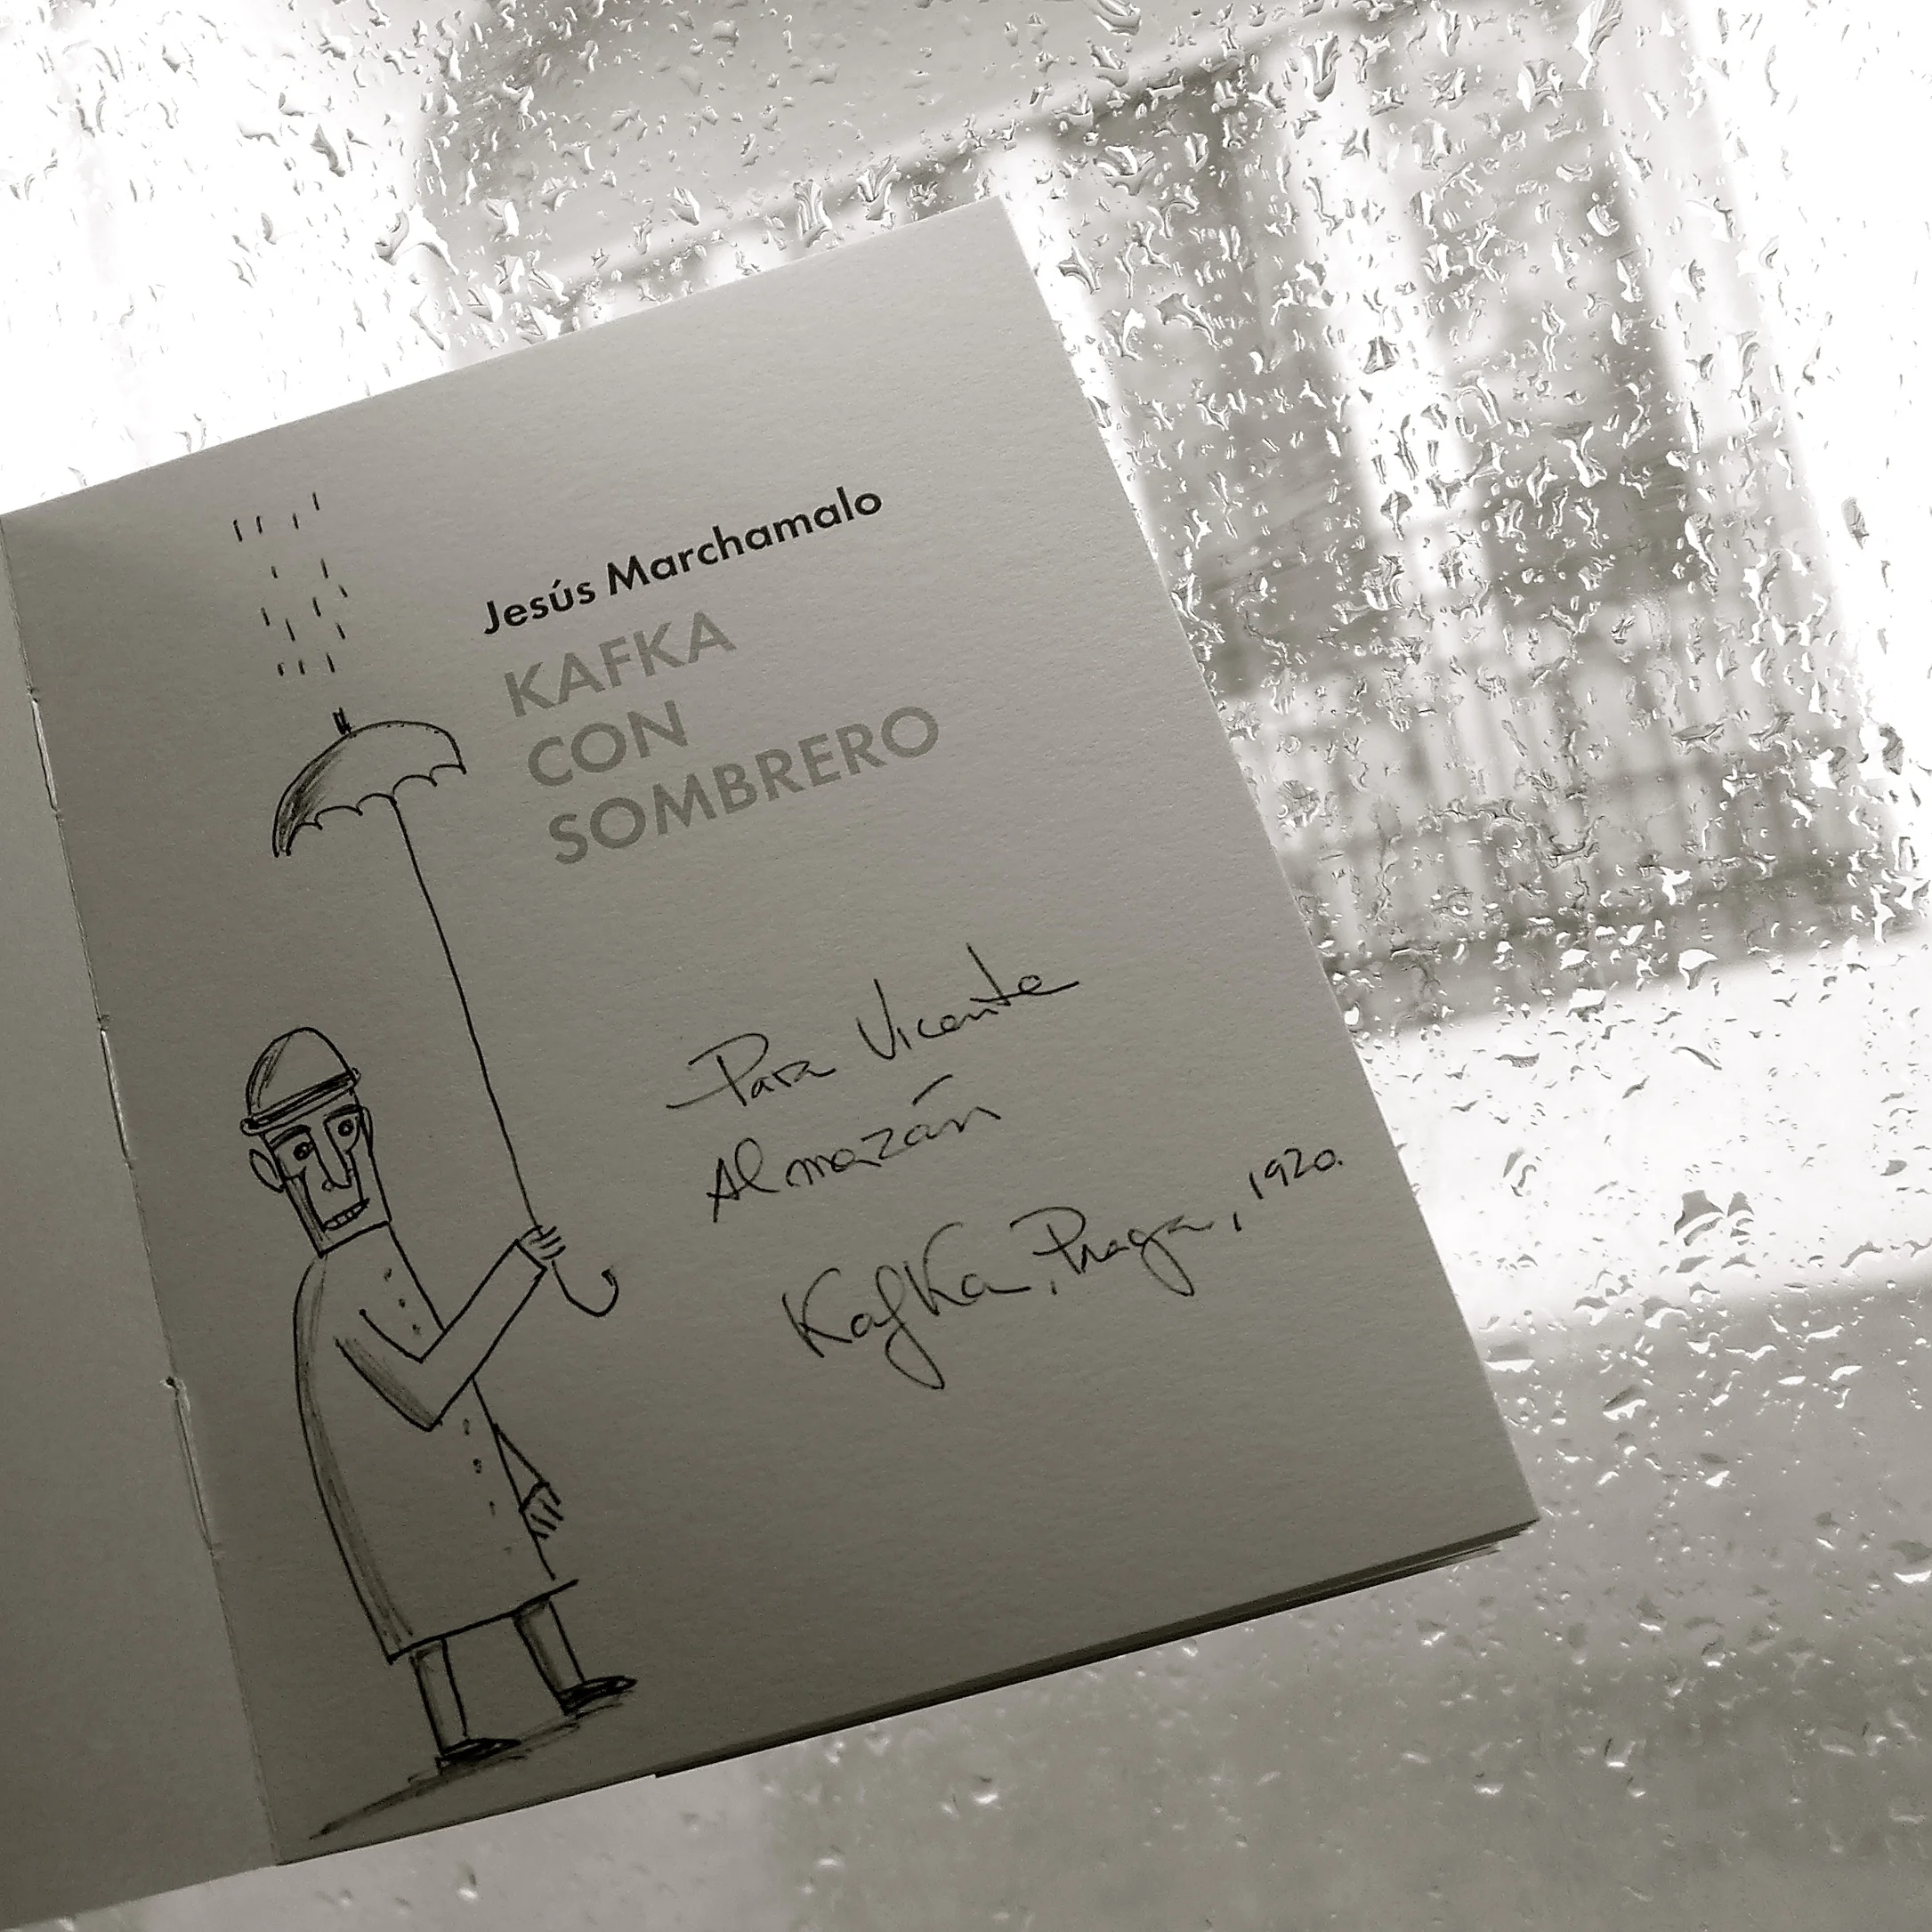 Jesús Marchamalo
KAFKA
CON
SOMBRERO
Para Vicente
Almazán
Kafka, Praga, 1920.